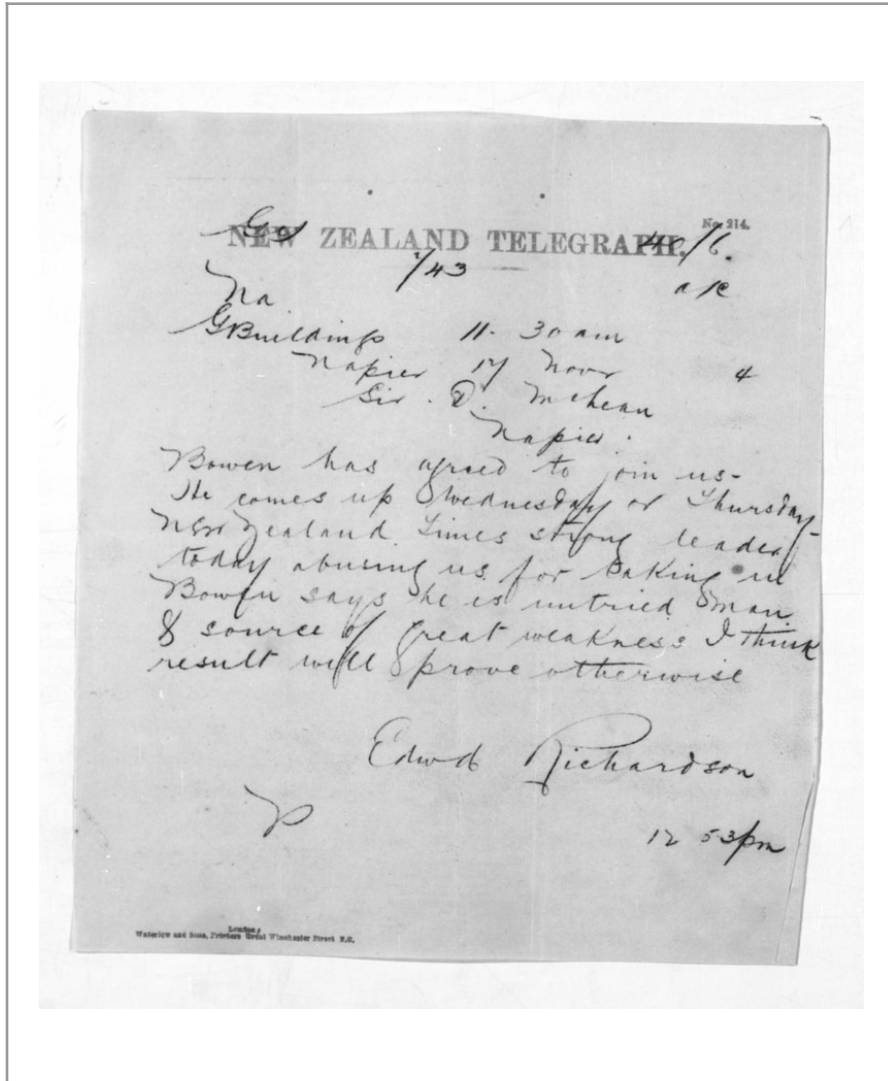 No. 214.
Gov
NEW ZEALAND TELEGRAPH.
40/6.
1/43
Na
GBuildings 11. 30 am
Napier 17 Novr 4
Sir . D. McLean
Napier .
Bowen has agreed to join us-
He comes up Wednesday or Thursday-
New Zealand Times strong leader
today abusing us for taking in
Bowen says he is untried man
& source of great weakness I think
result will prove otherwise
Edwd Richardson
12 53pm
London;
Waterlow and Sons, Printers Great Winchester Street E.C.